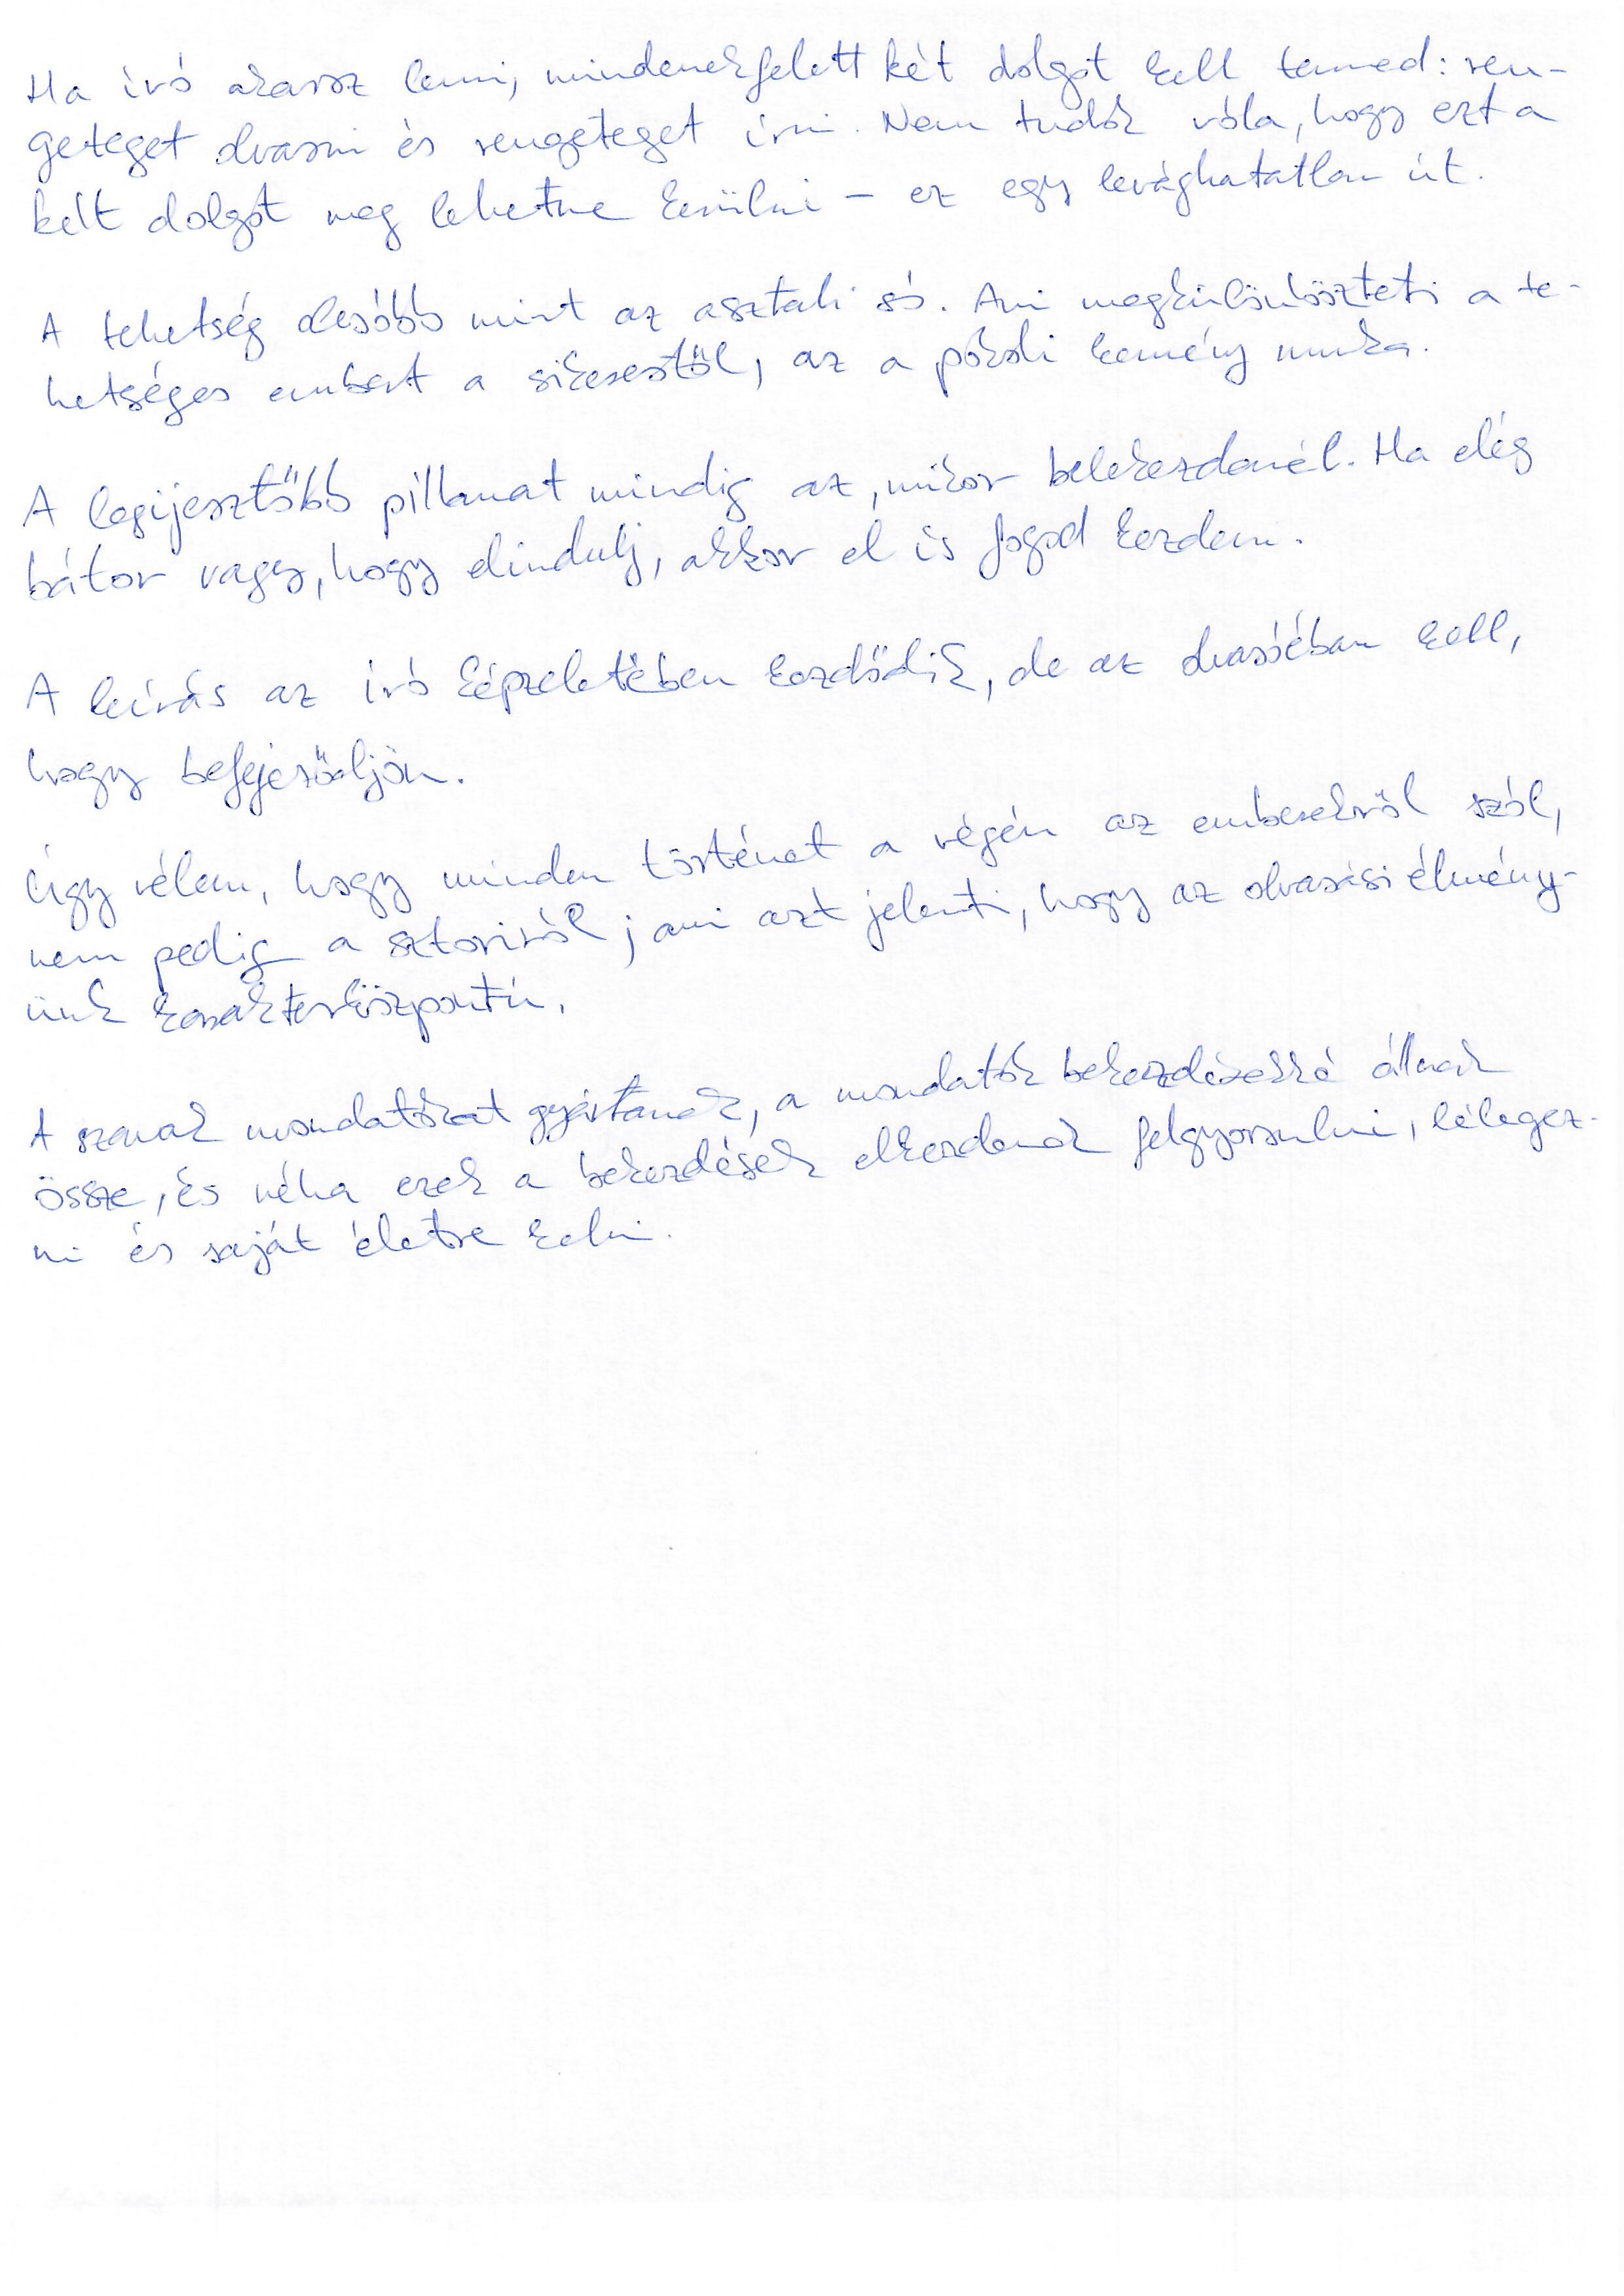 Ha író akarsz lenni, mindenekfelett két dolgot kell tenned: ren-
geteget olvasni és rengeteget írni. Nem tudok róla, hogy ezt a
két dolgot meg lehetne kerülni – ez egy levághatatlan út.
A tehetség olcsóbb mint az asztali só. Ami megkülönbözteti a te-
hetséges embert a sikerestől, az a pokoli kemény munka.
A legijesztőbb pillanat mindig az, mikor belekezdenél. Ha elég
bátor vagy, hogy elindulj, akkor el is fogod kezdeni.
A leírás az író képzeletében kezdődik, de az olvasóéban kell,
hogy befejeződjön.
Úgy vélem, hogy minden történet a végén az emberekről szól,
nem pedig a sztoriról; ami azt jelenti, hogy az olvasási élmény-
ünk karakterközpontú.
A szavak mondatokat gyártanak, a mondatok bekezdésekké állnak
össze, és néha ezek a bekezdések elkezdenek felgyorsulni, lélegez-
ni és saját életre kelni.